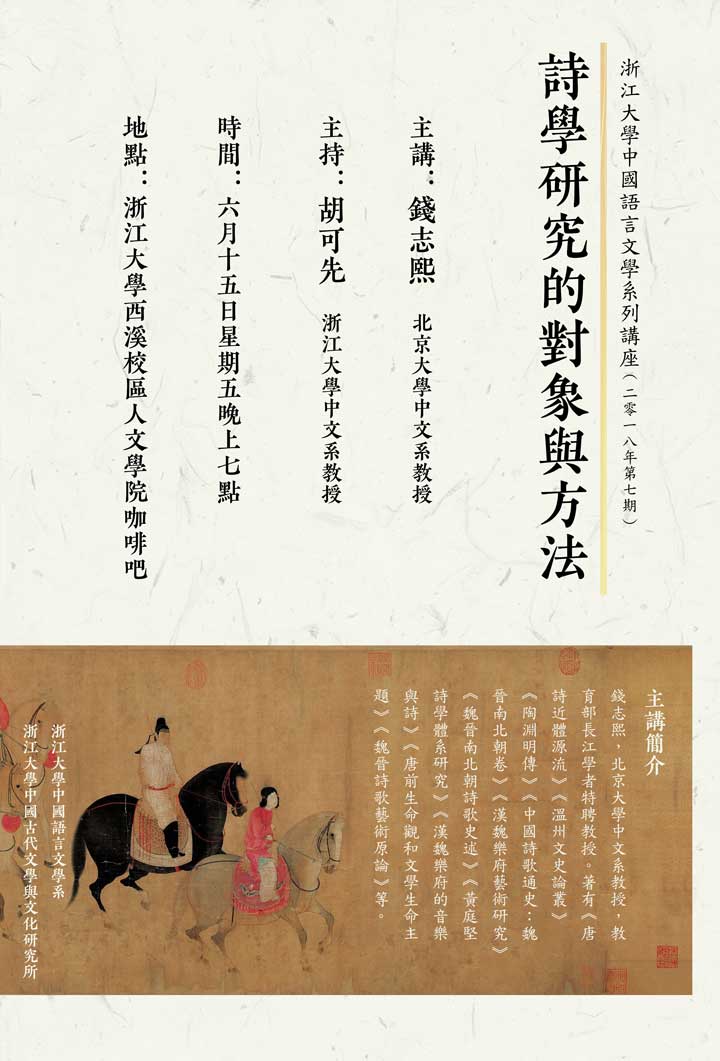 浙江大學中國語言文學系列講座(二零一八年第七期)
詩學研究的對象與方法
主講:錢志熙 北京大學中文系教授
主持:胡可先 浙江大學中文系教授
時間:六月十五日星期五晚上七點
地點:浙江大學西溪校區人文學院咖啡吧
主講簡介
錢志熙,北京大學中文系教授,教
育部長江學者特聘教授。著有《唐
詩近體源流》《溫州文史論叢》
《陶淵明傳》《中國詩歌通史:魏
晉南北朝卷》《漢魏樂府藝術研究》
《魏晉南北朝詩歌史述》《黃庭堅
詩學體系研究》《漢魏樂府的音樂
與詩》《唐前生命觀和文學生命主
題》《魏晉詩歌藝術原論》等。
浙江大學中國語言文學系
浙江大學中國古代文學與文化研究所